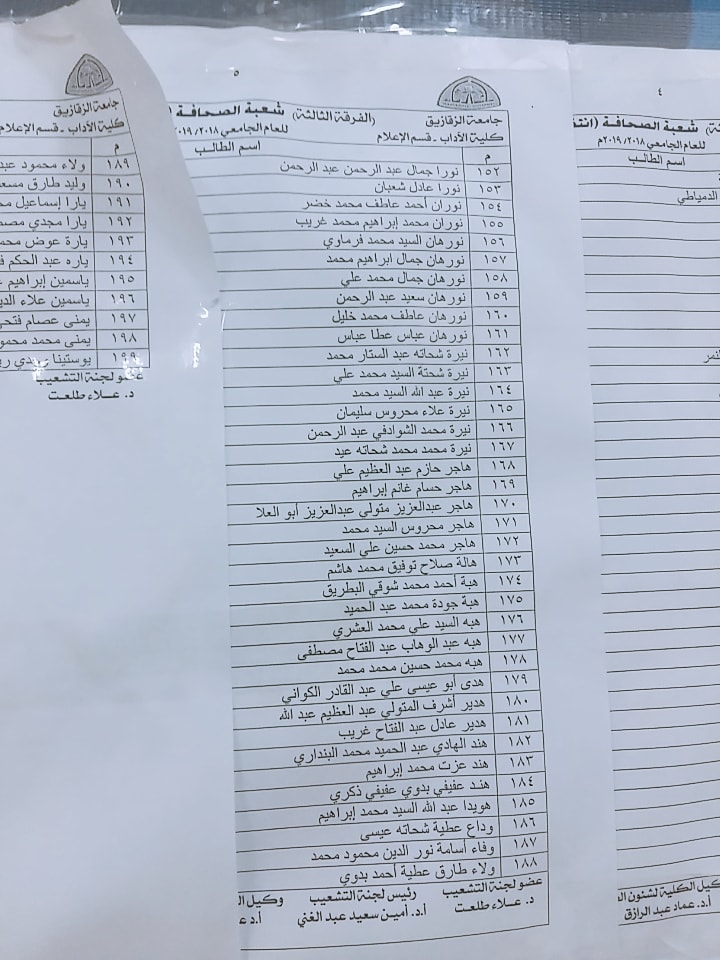 ٤
شعبة الصحافة
للعام الجامعي ٢٠١٩/٢٠١٨م
اسم الطالب
الدمياطي
النمر
وكيل الكلية لشئون
أ.د. عماد عبد الرازق
٥
جامعة الزقازيق
(الفرقة الثالثة) شعبة الصحافة
كلية الآداب - قسم الإعلام
للعام الجامعي ٢٠١٩/٢٠١٨
م
اسم الطالب
١٥٢ نورا جمال عبد الرحمن عبد الرحمن
١٥٣ نورا عادل شعبان
١٥٤ نوران أحمد عاطف محمد خضر
١٥٥ نوران محمد إبراهيم محمد غريب
١٥٦ نورهان السيد محمد فرماوي
١٥٧ نورهان جمال ابراهيم محمد
١٥٨ نورهان جمال محمد علي
١٥٩ نورهان سعيد عبد الرحمن
١٦٠ نورهان عاطف محمد خليل
١٦١ نورهان عباس عطا عباس
١٦٢ نيرة شحاته عبد الستار محمد
١٦٣ نيرة شحتة السيد محمد علي
١٦٤ نيرة عبد الله السيد محمد
١٦٥ نيرة علاء محروس سليمان
١٦٦ نيرة محمد الشوادفي عبد الرحمن
١٦٧ نيرة محمد محمد شحاته عيد
١٦٨ هاجر حازم عبد العظيم علي
١٦٩ هاجر حسام غانم إبراهيم
١٧٠ هاجر عبدالعزيز متولي عبدالعزيز أبو العلا
١٧١ هاجر محروس السيد محمد
١٧٢ هاجر محمد حسين علي السعيد
١٧٣ هالة صلاح توفيق محمد هاشم
١٧٤ هبة أحمد محمد شوقي البطريق
١٧٥ هبة جودة محمد عبد الحميد
١٧٦ هبه السيد علي محمد العشري
١٧٧ هبه عبد الوهاب عبد الفتاح مصطفى
١٧٨ هبه محمد حسين محمد محمد
١٧٩ هدى أبو عيسى علي عبد القادر الكواني
١٨٠ هدير أشرف المتولي عبد العظيم عبد الله
١٨١ هدير عادل عبد الفتاح غريب
١٨٢ هند الهادي عبد الحميد محمد البنداري
١٨٣ هند عزت محمد إبراهيم
١٨٤ هند عفيفي بدوي عفيفي ذكري
١٨٥ هويدا عبد الله السيد محمد إبراهيم
١٨٦ وداع عطية شحاته عيسى
١٨٧ وفاء أسامة نور الدين محمود محمد
١٨٨ ولاء طارق عطية أحمد بدوي
عضو لجنة التشعيب رئيس لجنة التشعيب وكيل ال
د. علاء طلعت أ.د. أمين سعيد عبد الغني أ.د
جامعة الزقازيق
كلية الآداب - قسم الإعلام
م
١٨٩ ولاء محمود عبد
١٩٠ وليد طارق
١٩١ يارا إسماعيل
١٩٢ يارا مجدي
١٩٣ يارة عوض
١٩٤ ياره عبد الحكم
١٩٥ ياسمين إبراهيم
١٩٦ ياسمين علاء
١٩٧ يمنى عصام فتحي
١٩٨ يمنى محمد
١٩٩ يوستينا
عضو لجنة التشعيب
د. علاء طلعت